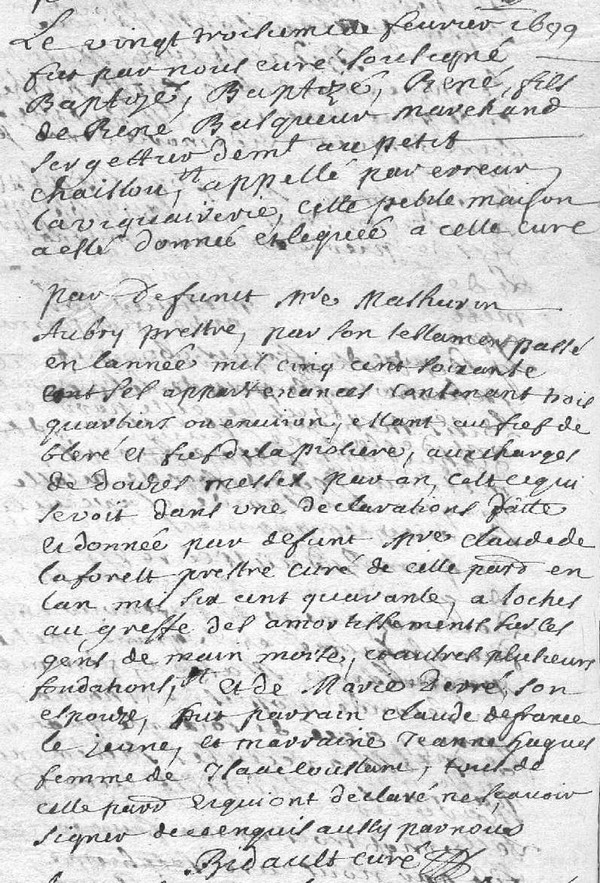 Le vingt troisieme fevrier 1699
fut par nous curé soubsigné
Baptizé, Baptizé, René, fils
de René Busqueur marchand
sergetteur demt au petit
chaillou, appellé par erreur
la viguairerie, cette petite maison
a esté donnée et leguée a cette cure
par defunct Mre Mathurin
Aubry prestre, par son testament passé
en lannée mil cinq cent soixante
ses appartenances contenant trois
quartiers ou environ, estant au fief de
bleré et fief de la pioliere, aux charges
de douzes messes par an, cest ce qui
se voit dans une declarations faitte
et donnée par defunt Mre claude de
la forest prestre curé de cette parr en
lan mil six cent quarante, a loches
au greffe des amortissements sur les
gens de main morte, et autres plusieurs
fondations, et de Marie son
espouze, fut parrain claude defrance
le jeune, et marraine Jeanne hugues
femme de tous de
cette parr et qui ont declaré ne scavoir
signer de ce enquis aussy par nous
Bidault curé